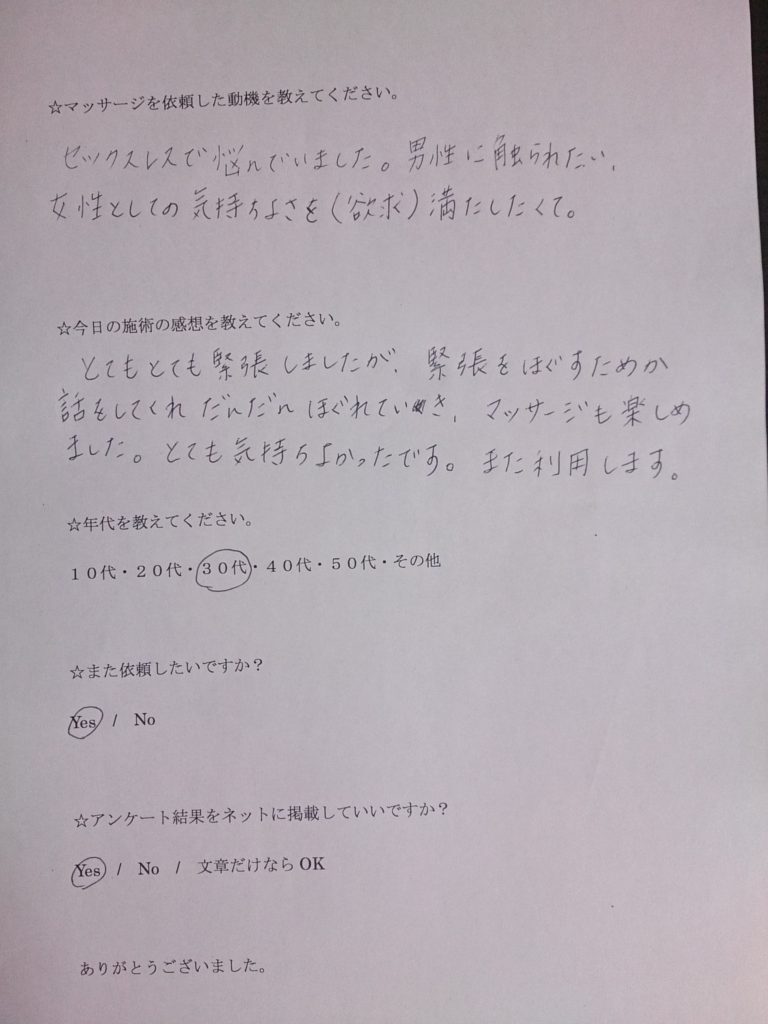 ☆マッサージを依頼した動機を教えてください。
セックスレスで悩んでいました。男性に触られたい、
女性としての気持ちよさを(欲求)満たしたくて。
☆今日の施術の感想を教えてください。
とてもとても緊張しましたが、緊張をほぐすためか
話をしてくれ だんだん ほぐれていき、マッサージも楽しめ
ました。とても気持ちよかったです。また利用します。
☆年代を教えてください。
10代・20代・30代・40代・50代・その他
☆また依頼したいですか?
Yes / No
☆アンケート結果をネットに掲載していいですか?
Yes / No / 文章だけならOK
ありがとうございました。